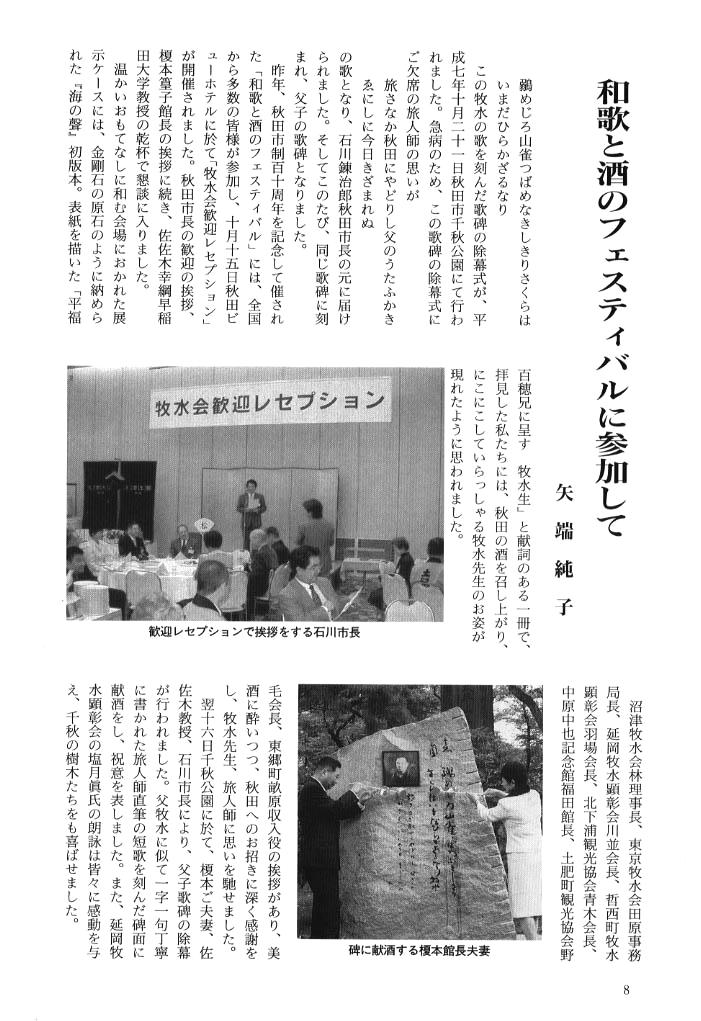 和歌と酒のフェスティバルに参加して
矢端純子
鶸めじろ山雀つばめなきしきりさくらは
いまだひらかざるなり
この牧水の歌を刻んだ歌碑の除幕式が、平
成七年十月二十一日秋田市千秋公園にて行わ
れました。急病のため、この歌碑の除幕式に
ご欠席の旅人師の思いが
旅さなか秋田にやどりし父のうたふかき
ゑにしに今日きざまれぬ
の歌となり、石川錬治郎秋田市長の元に届け
られました。そしてこのたび、同じ歌碑に刻
まれ、父子の歌碑となりました。
昨年、秋田市制百十周年を記念して催され
た「和歌と酒のフェスティバル」には、全国
から多数の皆様が参加し、十月十五日秋田ビ
ューホテルに於て「牧水会歓迎レセプション」
が開催されました。秋田市長の歓迎の挨拶、
榎本篁子館長の挨拶に続き、佐佐木幸綱早稲
田大学教授の乾杯で懇談に入りました。
温かいおもてなしに和む会場におかれた展
示ケースには、金剛石の原石のように納めら
れた『海の聲』初版本。表紙を描いた「平福
百穂兄に呈す　牧水生」と献詞のある一冊で、
拝見した私たちには、秋田の酒を召し上がり、
にこにこしていらっしゃる牧水先生のお姿が
現れたように思われました。
牧水会歓迎レセプション
松
歓迎レセプションで挨拶をする石川市長
沼津牧水会林理事長、東京牧水会田原事務
局長、延岡牧水顕彰会川並会長、哲西町牧水
顕彰会羽場会長、北下浦観光協会青木会長、
中原中也記念館福田館長、土肥町観光協会野
毛会長、東郷町畝原収入役の挨拶があり、美
酒に酔いつつ、秋田へのお招きに深く感謝を
し、牧水先生、旅人師に思いを馳せました。
翌十六日千秋公園に於て、榎本ご夫妻、佐
佐木教授、石川市長により、父子歌碑の除幕
が行われました。父牧水に似て一字一句丁寧
に書かれた旅人師直筆の短歌を刻んだ碑面に
献酒をし、祝意を表しました。また、延岡牧
水顕彰会の塩月眞氏の朗詠は皆々に感動を与
え、千秋の樹木たちをも喜ばせました。
碑に献酒する榎本館長夫妻
8